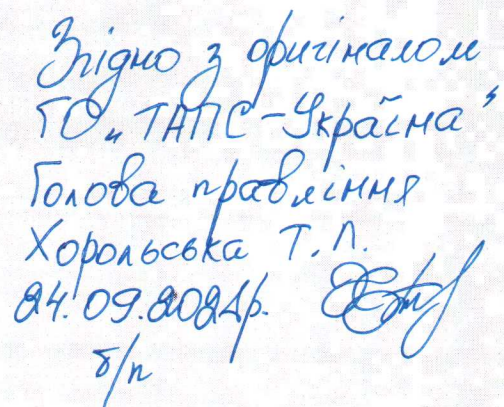 Згідно з оригіналом
ГО „ТАПС-Україна"
Голова правління
Хорольська Т.Л.
24.09.2021р.
б/п